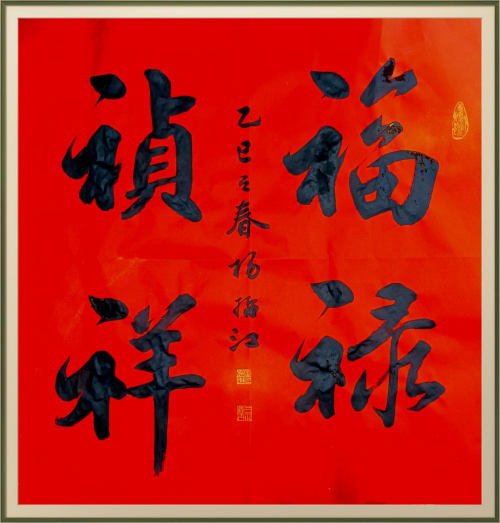 福禄
乙巳之春杨梅江
祯祥